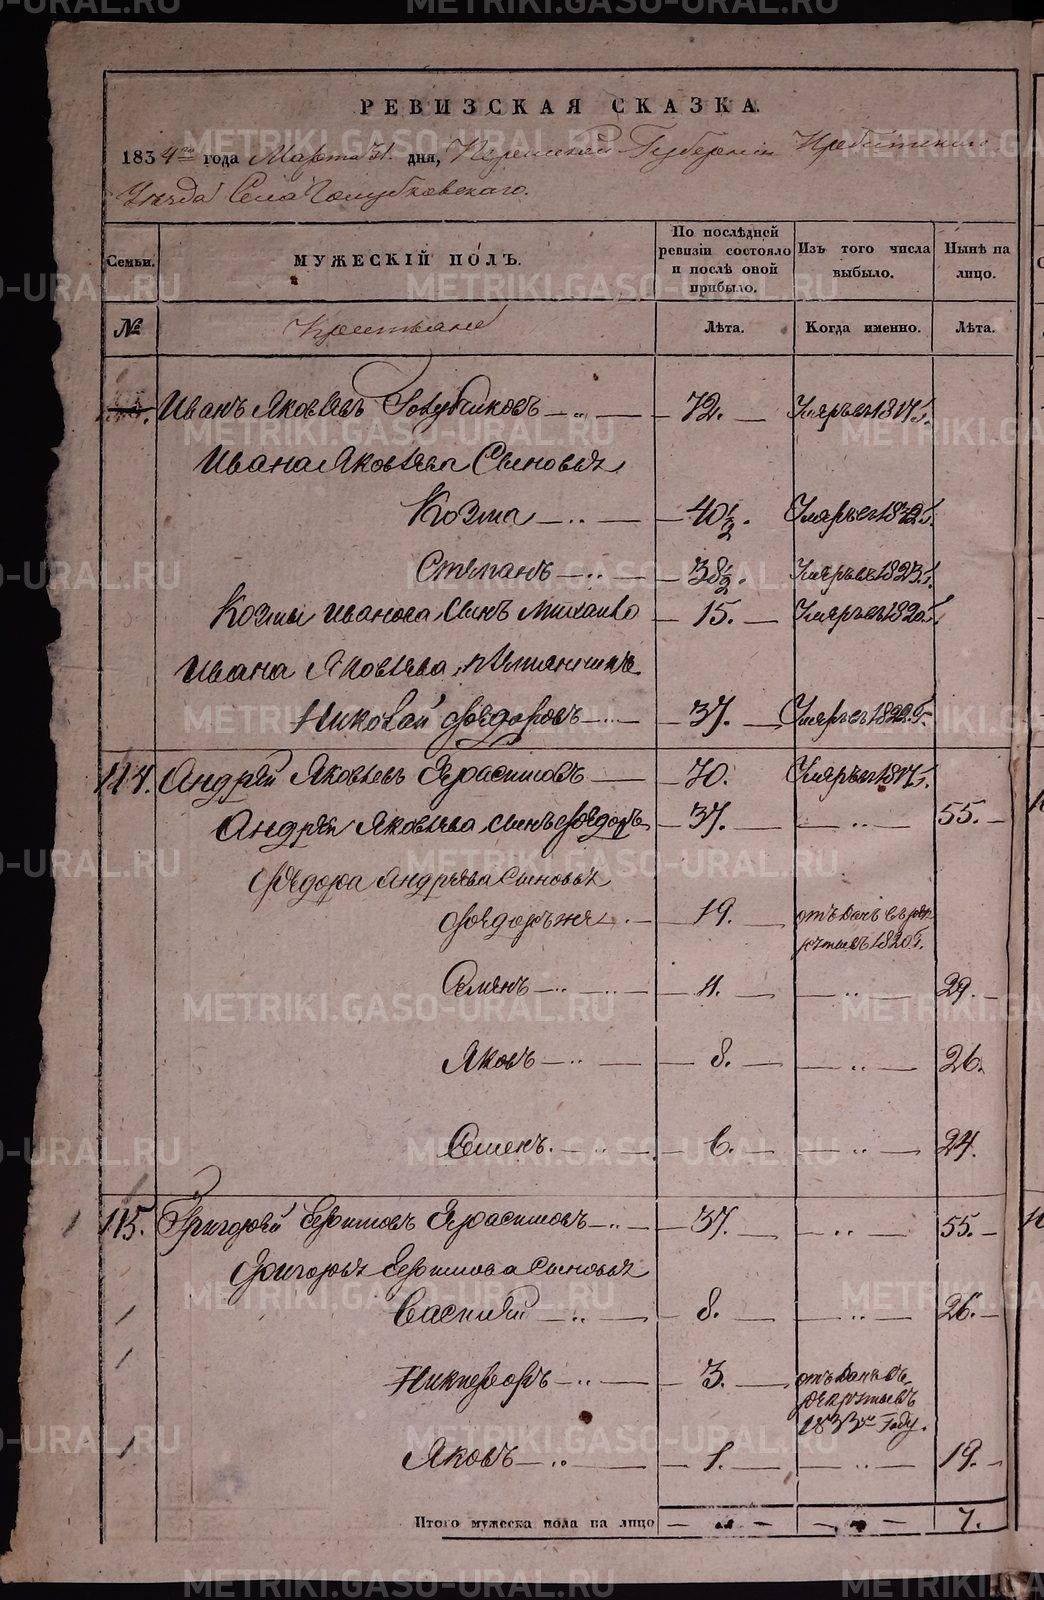 РЕВИЗСКАЯ СКАЗКА.
1834го года Марта 31. дня, Пермской Губернии Ирбитского
Уезда Села Голубковскаго.
Семьи.
МУЖЕСКІЙ ПОЛЪ.
По послѣдней ревизіи состояло и послѣ оной прибыло.
Изъ того числа выбыло.
Нынѣ на лицо.
№
Крестьяне
Лѣта.
Когда именно.
Лѣта.
Иванъ Яковлевъ Голубчиковъ 72. Умеръ 1817 г.
Ивана Яковлева Сыновья
Козма 40½. Умеръ
Степанъ 38½. Умеръ 1823 г.
Козмы Иванова Сынъ Михаило 15. Умеръ 1820 г.
Ивана Яковлева племянникъ
Николай Федоровъ 37. Умеръ 1822 г.
114. Андрей Яковлевъ Герасимовъ 70. Умеръ 1817 г.
Андрея Яковлева сынъ Федоръ 37. 55.
Федора Андреева Сыновья
Федоръ же 19. отъданъ въ рек
рутъ 1820 г.
Семенъ 11. 29.
Яковъ 8. 26.
Семенъ 6. 24.
115. Григорей Ефимовъ Герасимовъ 37. 55.
Григорья Ефимова сыновья
Василей 8. 26.
Никифоръ 3. отъданъ въ
рекруты
1833го Году.
Яковъ 1. 19.
Итого мужеска пола на лицо 7.
METRIKI.GASO-URAL.RU